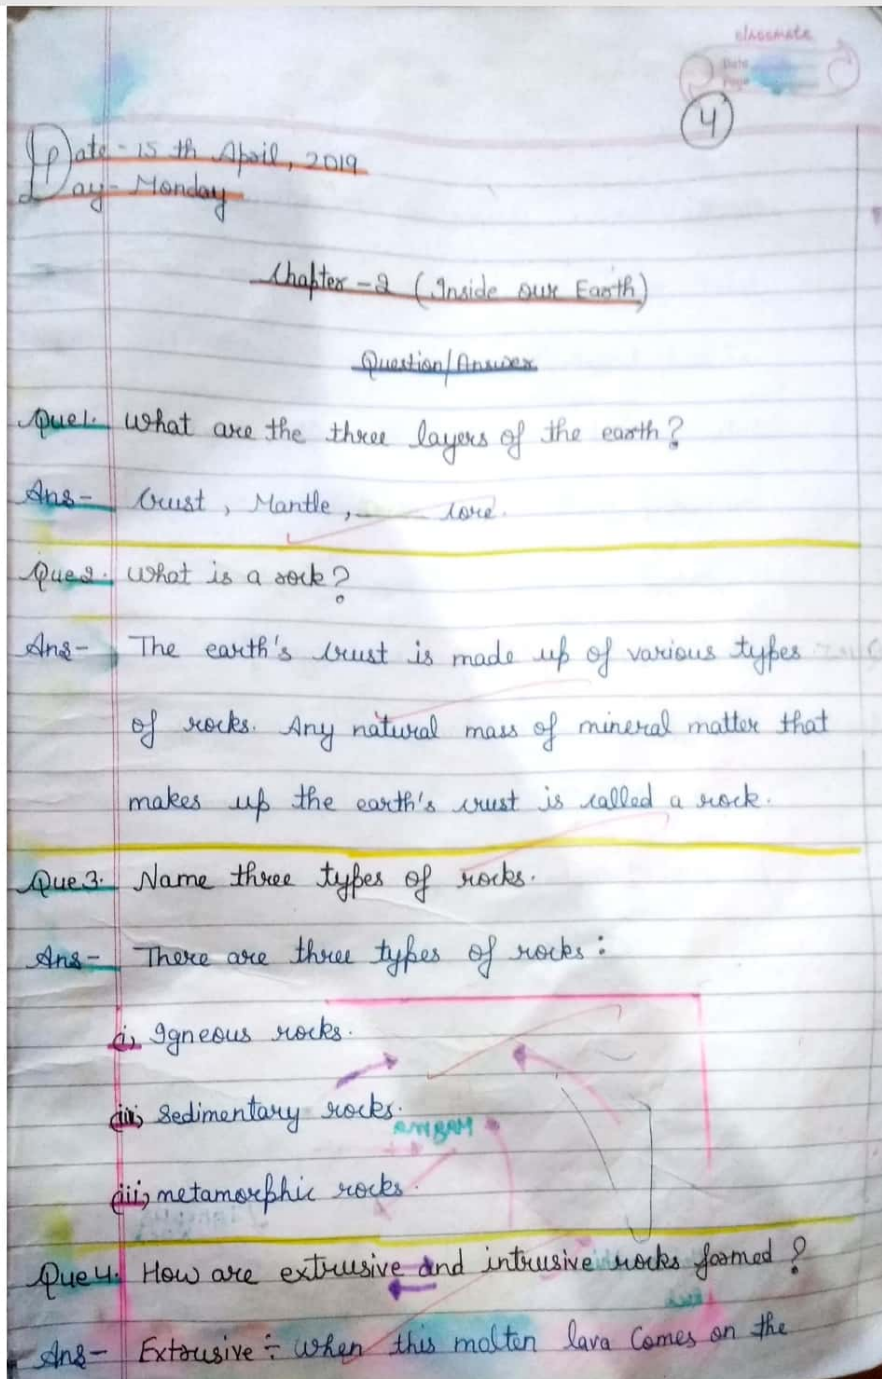 classmate
Date
Page
4
Date - 15 th April, 2019
Day - Monday
Chapter - 2 (Inside our Earth)
Question/Answer
Que1. What are the three layers of the earth?
Ans - Crust, Mantle, core.
Que2. What is a rock?
Ans - The earth's crust is made up of various types
of rocks. Any natural mass of mineral matter that
makes up the earth's crust is called a rock.
Que3. Name three types of rocks.
Ans - There are three types of rocks:
(i) Igneous rocks.
(ii) Sedimentary rocks.
(iii) metamorphic rocks.
Que4. How are extrusive and intrusive rocks formed?
Ans - Extrusive ÷ When this molten lava Comes on the